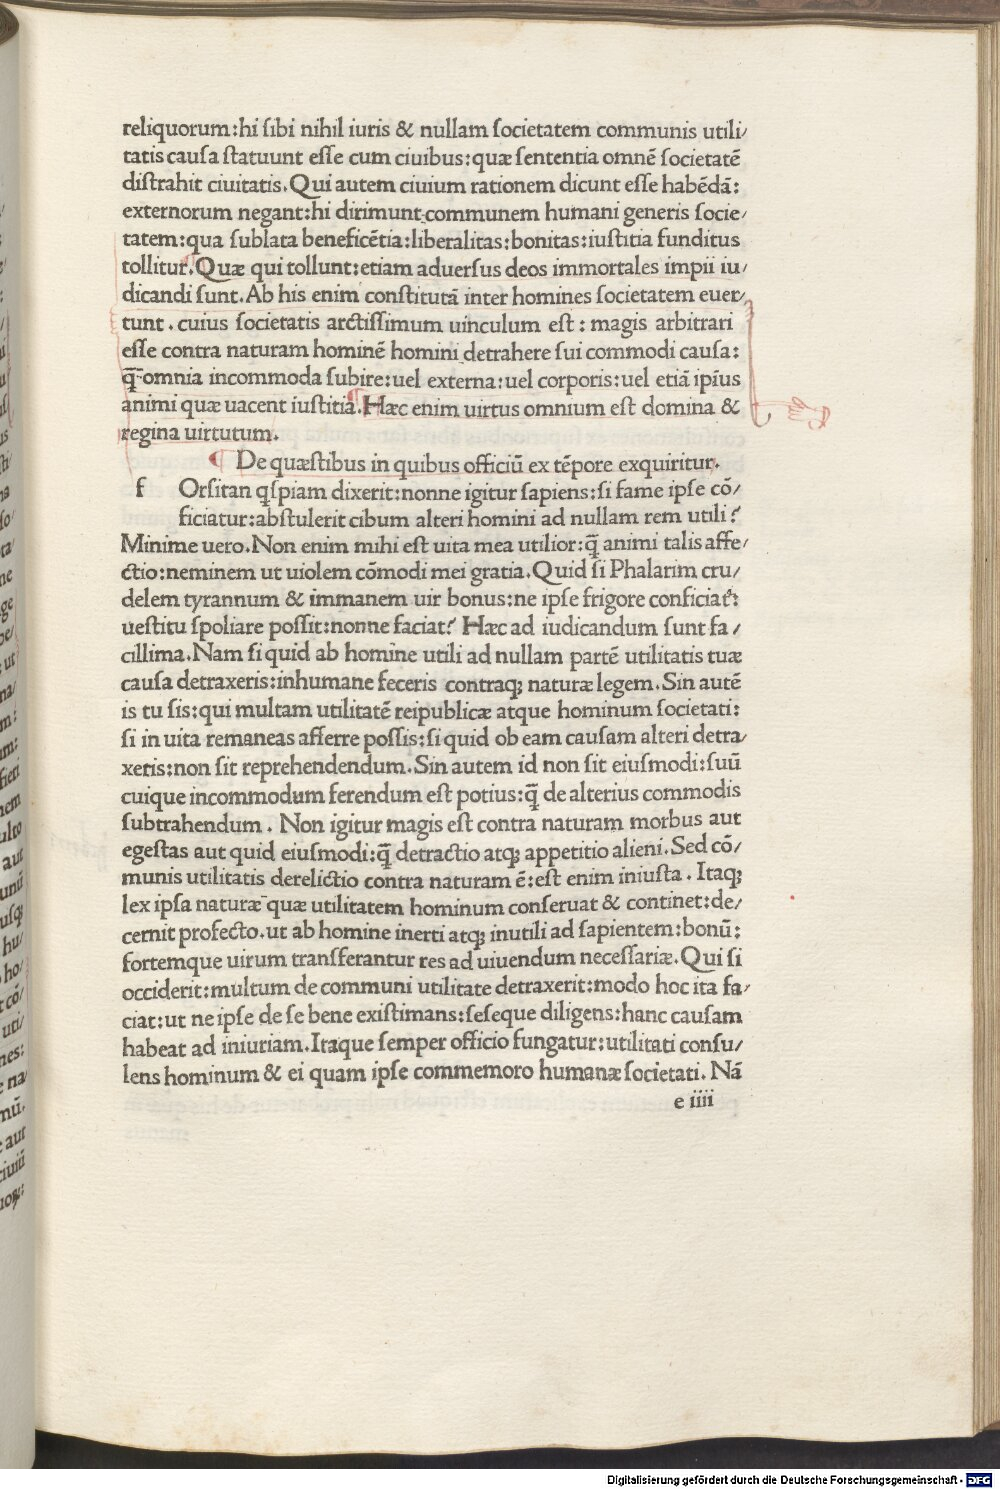 reliquorum:hi ſibi nihil iuris & nullam ſocietatem communis utili/
tatis cauſa ſtatuunt eſſe cum ciuibus:quæ ſententia omnē ſocietatē
diſtrahit ciuitatis.Qui autem ciuium rationem dicunt eſſe habēdā:
externorum negant:hi dirimunt communem humani generis ſocie/
tatem:qua ſublata beneficētia:liberalitas:bonitas:iuſtitia funditus
tollitur.Quæ qui tollunt:etiam aduerſus deos immortales impii iu/
dicandi ſunt.Ab his enim conſtitutā inter homines ſocietatem euer/
tunt.cuius ſocietatis arctiſſimum uinculum eſt: magis arbitrari
eſſe contra naturam hominē homini detrahere ſui commodi cauſa:
q̄ omnia incommoda ſubire:uel externa:uel corporis:uel etiā ipſius
animi quæ uacent iuſtitia.Hæc enim uirtus omnium eſt domina &
regina uirtutum.
De quæſtibus in quibus officiū ex tēpore exquiritur.
f Orſitan qſpiam dixerit:nonne igitur ſapiens:ſi fame ipſe cō/
ficiatur:abſtulerit cibum alteri homini ad nullam rem utili?
Minime uero.Non enim mihi eſt uita mea utilior:q̄ animi talis affe/
ctio:neminem ut uiolem cōmodi mei gratia.Quid ſi Phalarim cru/
delem tyrannum & immanem uir bonus:ne ipſe frigore conficiat̄:
ueſtitu ſpoliare poſſit:nonne faciat? Hæc ad iudicandum ſunt fa/
cillima.Nam ſi quid ab homine utili ad nullam partē utilitatis tuæ
cauſa detraxeris:inhumane feceris contraq; naturæ legem.Sin autē
is tu ſis:qui multam utilitatē reipublicæ atque hominum ſocietati:
ſi in uita remaneas afferre poſſis:ſi quid ob eam cauſam alteri detra/
xeris:non ſit reprehendendum.Sin autem id non ſit eiuſmodi:ſuū
cuique incommodum ferendum eſt potius:q̄ de alterius commodis
ſubtrahendum. Non igitur magis eſt contra naturam morbus aut
egeſtas aut quid eiuſmodi:q̄ detractio atq; appetitio alieni.Sed cō/
munis utilitatis derelictio contra naturam ē:eſt enim iniuſta. Itaq;
lex ipſa naturæ quæ utilitatem hominum conſeruat & continet:de/
cernit profecto.ut ab homine inerti atq; inutili ad ſapientem:bonū:
fortemque uirum transferantur res ad uiuendum neceſſariæ.Qui ſi
occiderit:multum de communi utilitate detraxerit:modo hoc ita fa/
ciat:ut ne ipſe de ſe bene exiſtimans:ſeſeque diligens:hanc cauſam
habeat ad iniuriam.Itaque ſemper officio fungatur:utilitati conſu/
lens hominum & ei quam ipſe commemoro humanæ ſocietati. Nā
e iiii
Digitalisierung gefördert durch die Deutsche Forschungsgemeinschaft - DFG